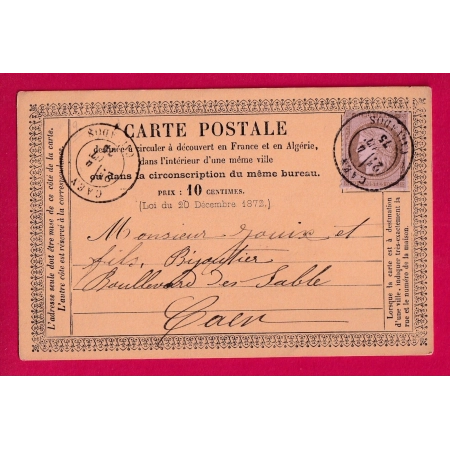 CARTE POSTALE
destinée à circuler à découvert en France et en Algérie,
dans l'intérieur d'une même ville
ou dans la circonscription du même bureau.
PRIX : 10 CENTIMES.
[Loi du 20 Décembre 1872.]
Monsieur Jouix et
fils, Bijoutier
Boullevard des Sable
Caen
L'adresse seule doit être mise de ce côté de la carte.
L'autre côté est réservé à la correspondance.
Lorsque la carte est à destination
d'une ville, indiquer très-exactement la
rue et le numéro de la maison.
CAEN
CALVADOS
CAEN
CALVADOS
75